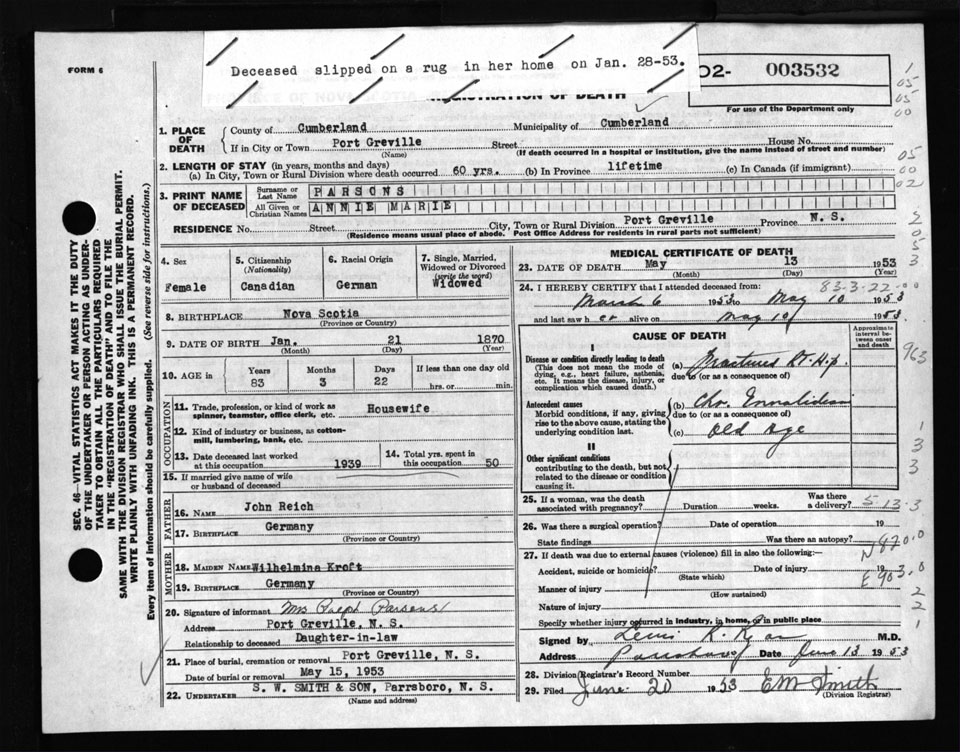 FORM 6
Deceased slipped on a rug in her home on Jan. 28-53.
REGISTRATION OF DEATH
02- 003532
For use of the Department only
1. PLACE OF DEATH
County of Cumberland Municipality of Cumberland
If in City or Town Port Greville Street House No.
(Name) (If death occurred in a hospital or institution, give the name instead of street and number)
2. LENGTH OF STAY (in years, months and days)
(a) In City, Town or Rural Division where death occurred 60 yrs. (b) In Province lifetime (c) In Canada (if immigrant)
3. PRINT NAME OF DECEASED
Surname or Last Name PARSONS
All Given or Christian Names ANNIE MARIE
RESIDENCE No. Street City, Town or Rural Division Port Greville Province N. S.
(Residence means usual place of abode. Post Office Address for residents in rural parts not sufficient)
4. Sex
Female
5. Citizenship
(Nationality)
Canadian
6. Racial Origin
German
7. Single, Married, Widowed or Divorced
(write the word)
Widowed
8. BIRTHPLACE Nova Scotia
(Province or Country)
9. DATE OF BIRTH Jan. 21 1870
(Month) (Day) (Year)
10. AGE in Years Months Days If less than one day
83 3 22 hrs. or min.
OCCUPATION
11. Trade, profession, or kind of work as spinner, teamster, office clerk, etc. Housewife
12. Kind of industry or business, as cotton-mill, lumbering, bank, etc.
13. Date deceased last worked at this occupation 1939
14. Total yrs. spent in this occupation 50
15. If married give name of wife or husband of deceased
FATHER
16. NAME John Reich
17. BIRTHPLACE Germany
(Province or Country)
MOTHER
18. MAIDEN NAME Wilhelmina Kroft
19. BIRTHPLACE Germany
(Province or Country)
20. Signature of informant Mrs Ralph Parsons
Address Port Greville, N. S.
Relationship to deceased Daughter-in-law
21. Place of burial, cremation or removal Port Greville, N. S.
Date of burial or removal May 15, 1953
22. UNDERTAKER S. W. SMITH & SON, Parrsboro, N. S.
(Name and address)
MEDICAL CERTIFICATE OF DEATH
23. DATE OF DEATH May 13 1953
(Month) (Day) (Year)
83-3-22
24. I HEREBY CERTIFY that I attended deceased from:
March 6 1953 to May 10 1953
and last saw her alive on May 10 1953
CAUSE OF DEATH
Approximate interval between onset and death
I
Disease or condition directly leading to death
(This does not mean the mode of dying, e.g., heart failure, asthenia, etc. It means the disease, injury, or complication which caused death.)
(a) Fractured Rt. Hip.
due to (or as a consequence of)
Antecedent causes
Morbid conditions, if any, giving rise to the above cause, stating the underlying condition last.
(b) Chr.
due to (or as a consequence of)
(c) Old Age
II
Other significant conditions
contributing to the death, but not related to the disease or condition causing it.
25. If a woman, was the death associated with pregnancy? Duration weeks. Was there a delivery? 5-13-3
26. Was there a surgical operation? Date of operation 19
State findings Was there an autopsy?
N 820.0
27. If death was due to external causes (violence) fill in also the following:—
Accident, suicide or homicide? Date of injury 19
(State which)
E 903.0
Manner of injury
(How sustained)
Nature of injury
Specify whether injury occurred in industry, in home, or in public place
Signed by M.D.
Address Parrsboro Date June 13 1953
28. Division Registrar's Record Number
29. Filed June 20 1953 E M Smith
(Division Registrar)
SEC. 46—VITAL STATISTICS ACT MAKES IT THE DUTY
OF THE UNDERTAKER OR PERSON ACTING AS UNDER-
TAKER TO OBTAIN ALL THE PARTICULARS REQUIRED
IN THE "REGISTRATION OF DEATH" AND TO FILE THE
SAME WITH THE DIVISION REGISTRAR WHO SHALL ISSUE THE BURIAL PERMIT.
WRITE PLAINLY WITH UNFADING INK. THIS IS A PERMANENT RECORD.
Every item of information should be carefully supplied. (See reverse side for instructions.)